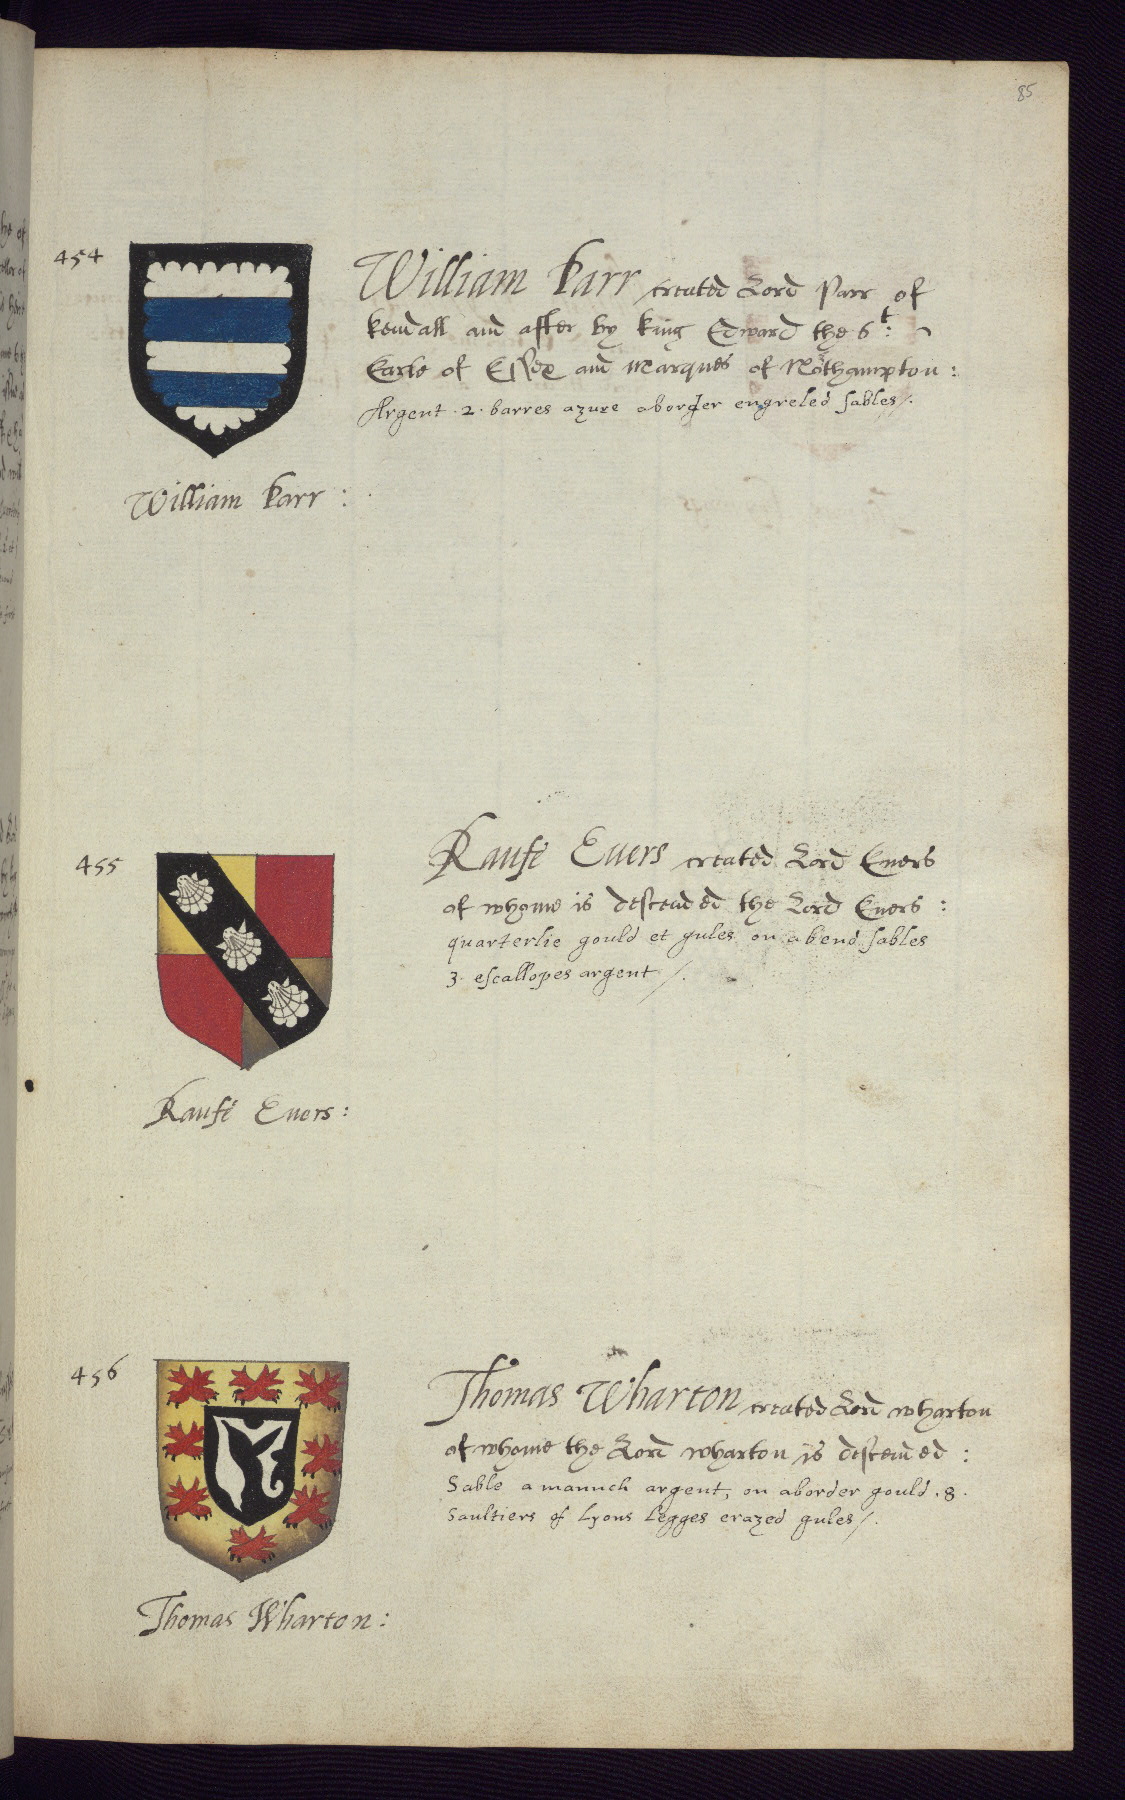 85
454
William Parr created Lord Parr of
kendall and after by king Edward the 6t:
Earle of Essex and Marques of Nothampton:
Argent .2. barres azure a border engreled sables/.
William Parr:
455
Raufe Evers created Lord Evers
of whome is descended the Lord Evers:
quarterlie gould et gules on a bend sables
3. escallopes argent/.
Raufe Evers:
456
Thomas Wharton created Lord wharton
of whome the Lord wharton is descended:
Sable a maunch argent, on a border gould .8.
Saultiers of Lyons Legges erazed gules/.
Thomas Wharton: